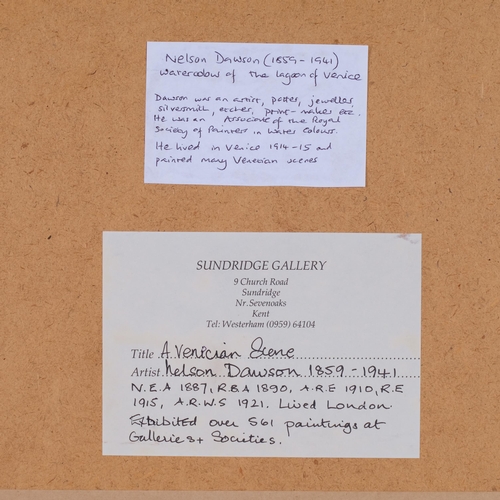 Nelson Dawson (1859-1941)
Watercolour of the lagoon of Venice
Dawson was an artist, poster, jeweller,
silversmith, etcher, print-maker etc.
He was an Associate of the Royal
Society of Painters in Water Colours.
He lived in Venice 1914-15 and
painted many Venetian scenes
SUNDRIDGE GALLERY
9 Church Road
Sundridge
Nr.Sevenoaks
Kent
Tel: Westerham (0959) 64104
Title A Venician Scene
Artist Nelson Dawson 1859-1941
N.E.A 1887, R.B.A 1890, A.R.E 1910, R.E
1915, A.R.W.S 1921. Lived London.
Exhibited over 561 paintings at
Galleries + Societies.